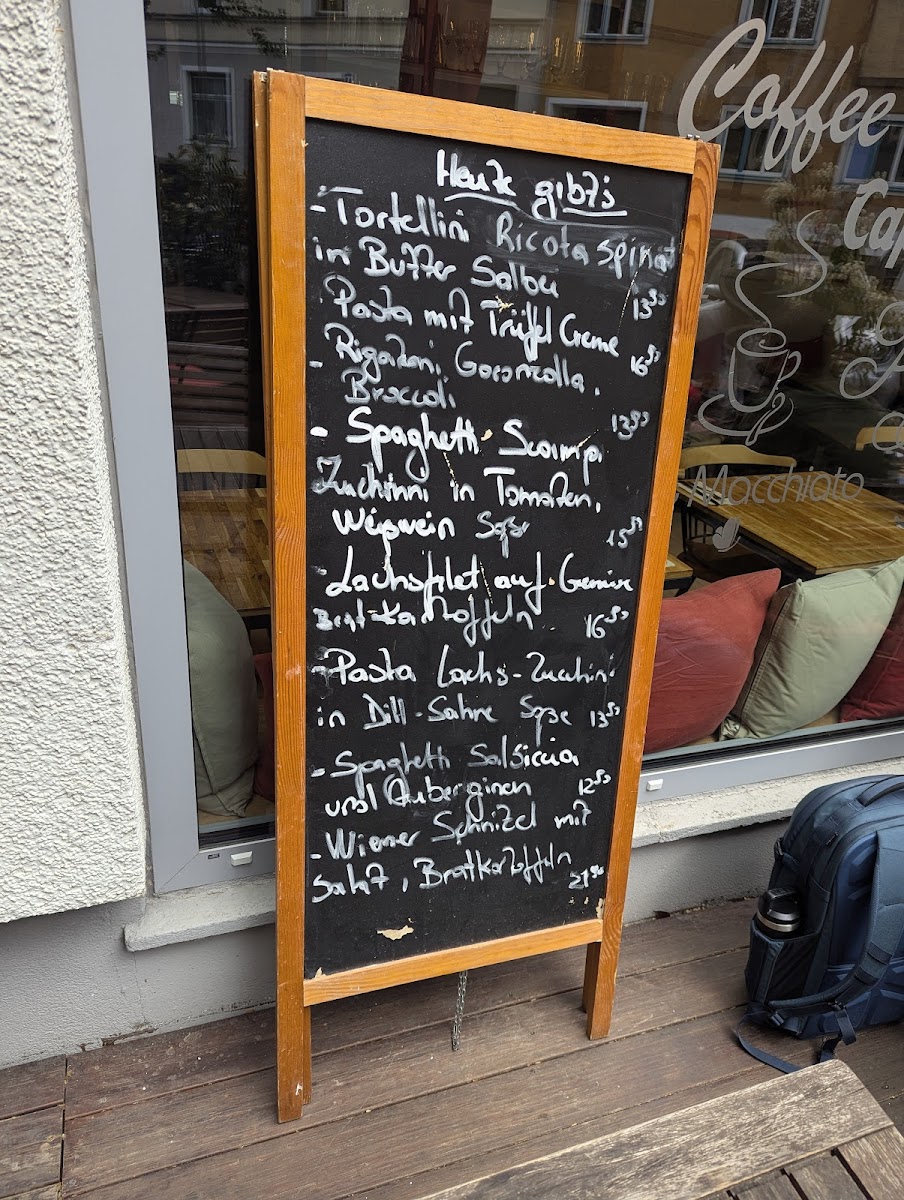 Heute gibt's
- Tortellini Ricota spinat
in Butter Salbei
13,50
- Pasta mit Trüffel Creme
16,50
- Rigatoni, Gorgonzolla,
Broccoli
13,50
- Spaghetti Scampi
Zuchinni in Tomaten,
Weißwein Soße
15,50
- Lachsfilet auf Gemüse
Brat-Kartoffeln
16,50
- Pasta Lachs-Zucchini
in Dill-Sahne Soße 13,50
- Spaghetti Salsiccia
und Auberginen 12,50
- Wiener Schnitzel mit
Salat, Bratkartoffeln
21,90
Coffee
Macchiato